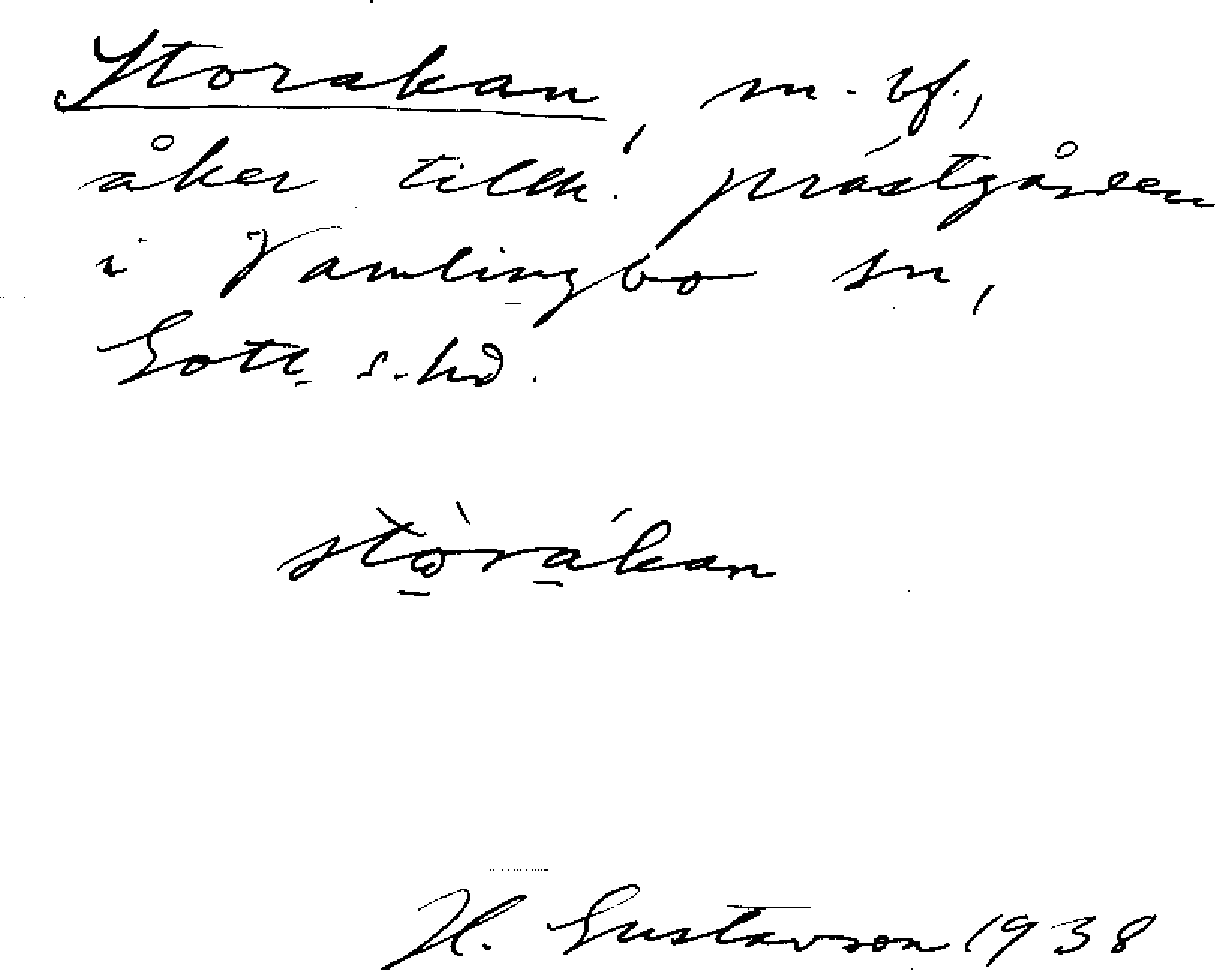 Storakan, m. bf.,
åker tillh. prästgården
i Vamlingbo sn,
Gotl. s. hd.
stòrákan
H. Gustavson 1938